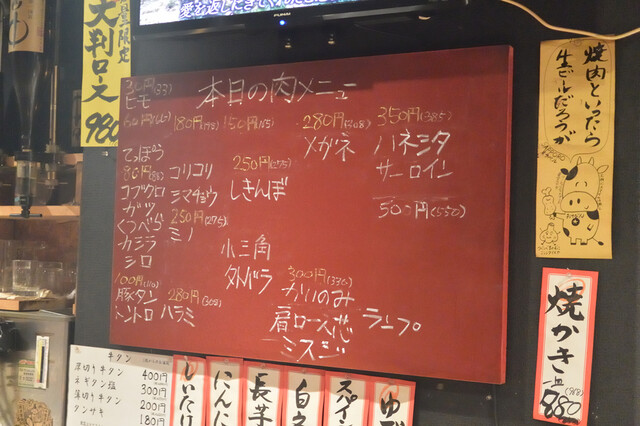 愛を返しに
FUNAI
数量限定
大判ロース
980
本日の肉メニュー
30円(33)
ヒモ
60円(66)
てっぽう
80円(88)
コブクロ
ガツ
くつべら
カシラ
シロ
100円(110)
豚タン
トントロ
180円(198)
コリコリ
シマチョウ
250円(275)
ミノ
280円(308)
ハラミ
150円(165)
250円(275)
しきんぼ
小三角
外バラ
280円(308)
メガネ
300円(330)
かいのみ
肩ロース芯
ミスジ
350円(385)
ハネシタ
サーロイン
500円(550)
ランプ
焼肉といったら
生ビールだろうが
焼かき
一皿
(968)
880
牛タン
厚切り牛タン 400円
ネギタン塩 300円
薄切り牛タン 200円
タンサキ 180円
しいたけ
にんに
長芋
白ネ
スパイシ
ゆで